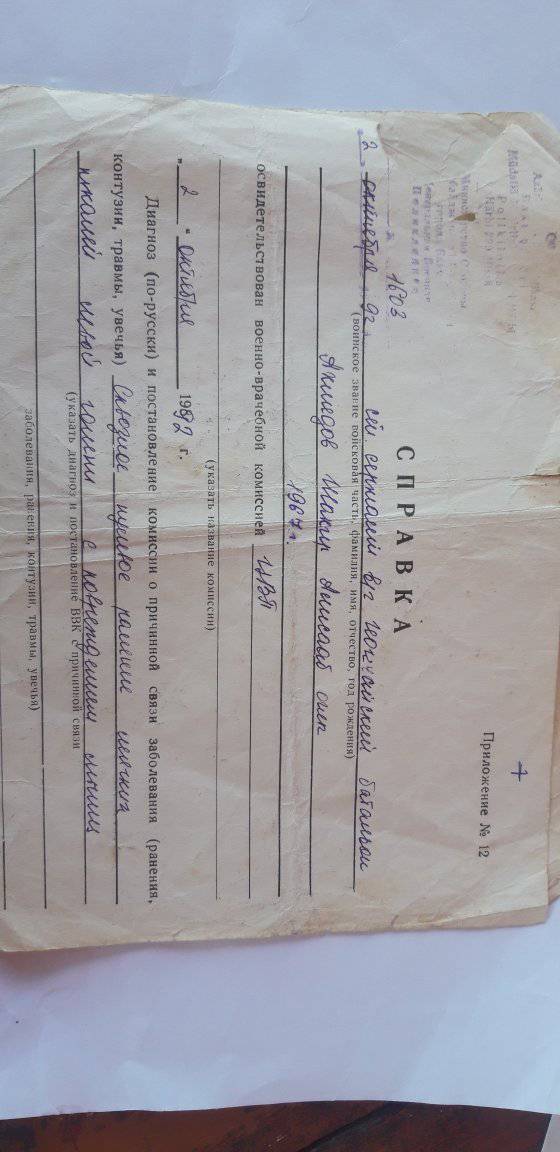 Приложение № 12
1603
2 октября 92
СПРАВКА
в/ч геокчайский батальон
(воинское звание войсковая часть, фамилия, имя, отчество, год рождения)
Ахмедов Шакир оглы
1967 г.
освидетельствован военно-врачебной комиссией ЦВП
(указать название комиссии)
„ 2 “ октября 1992 г.
Диагноз (по-русски) и постановление комиссии о причинной связи заболевания (ранения,
контузии, травмы, увечья) Сквозное пулевое ранение мягких
тканей левой голени с повреждением
(указать диагноз и постановление ВВК о причинной связи
заболевания, ранения, контузии, травмы, увечья)